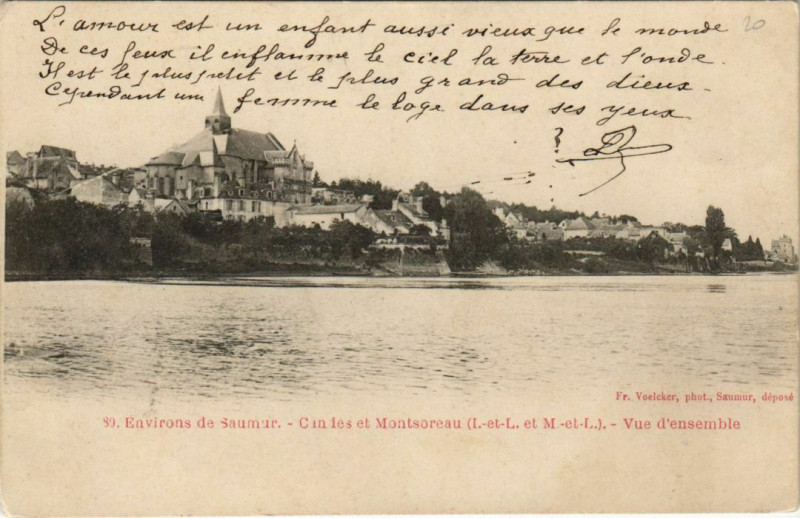 L'amour est un enfant aussi vieux que le monde
De ces feux il enflamme le ciel la terre et l'onde.
Il est le plus petit et le plus grand des dieux.
Cependant une femme le loge dans ses yeux
20
Fr. Voelcker, phot., Saumur, déposé
89. Environs de Saumur. - Candes et Montsoreau (I.-et-L. et M.-et-L.). - Vue d'ensemble